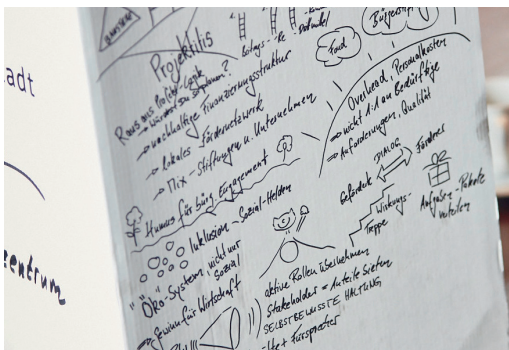 adt
zentrum
Projektitis
Raus aus Projekt-Logik
nachhaltige Finanzierungsstruktur
lokales Fördernetzwerk
Mix - Stiftungen u. Unternehmen
Humus für bürg. Engagement
Inklusion - Sozial-Helden
Öko-System nicht nur
Sozial
Gewinn für Wirtschaft
Fond
Overhead, Personalkosten
nicht 1:1 an Bedürftige
Anforderungen, Qualität
DIALOG
Förderer
Geförderte
Wirkungs-
Treppe
Aufgaben-Pakete
verteilen
aktive Rollen übernehmen
Stakeholder = Anteile bieten
SELBSTBEWUSSTE HALTUNG
Fürsprecher